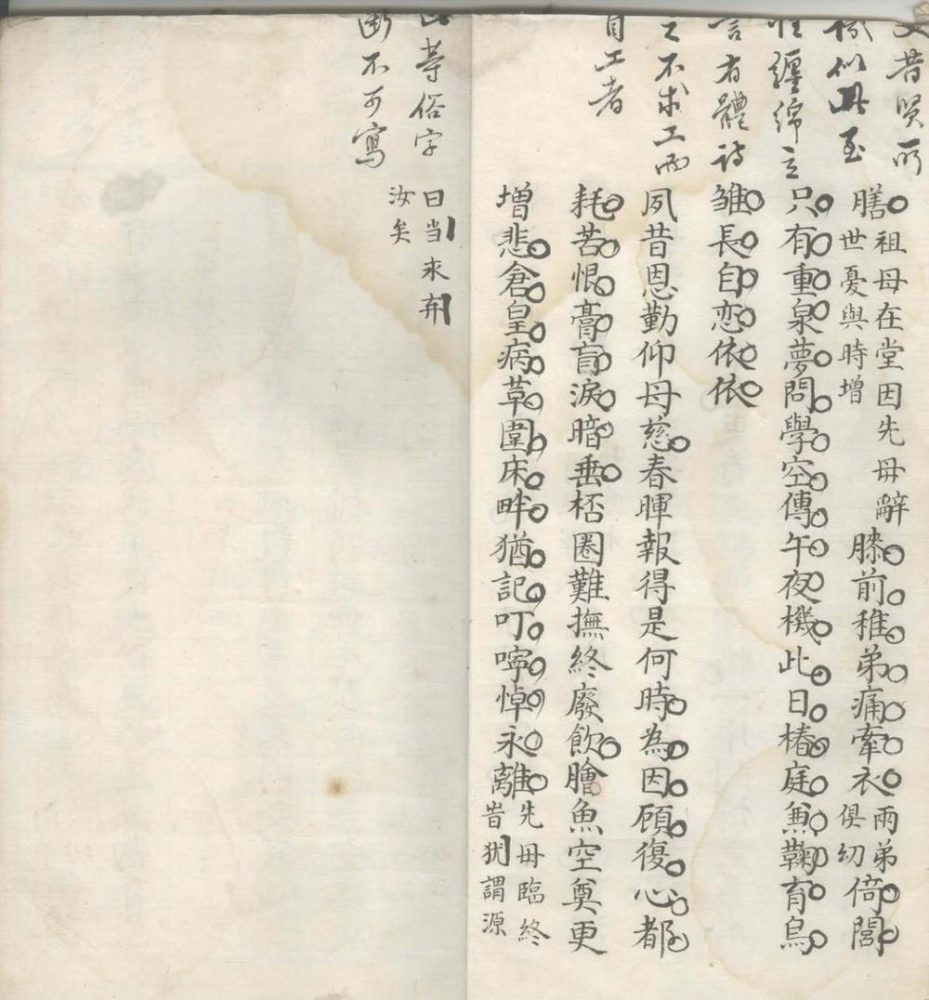 昔賢所
似此至
性纏綿立
言有體詩
之不求工而
自工者
此等俗字
断不可寫
膳祖母在堂因先母辭
世憂與時增
膝前稚弟痛牽衣兩弟
俱幼
倚閭
只有重泉夢問學空傳午夜機此日椿庭兼鞠育烏
雛長自恋依依
夙昔恩勤仰母慈春暉報得是何時為因顧復心都
耗苦恨膏肓淚暗垂桮圈難撫終廢飲膾魚空奠更
增悲倉皇病革圍床畔猶記叮嚀悼永離先母臨終
旹犹謂源
曰当永弃
汝矣